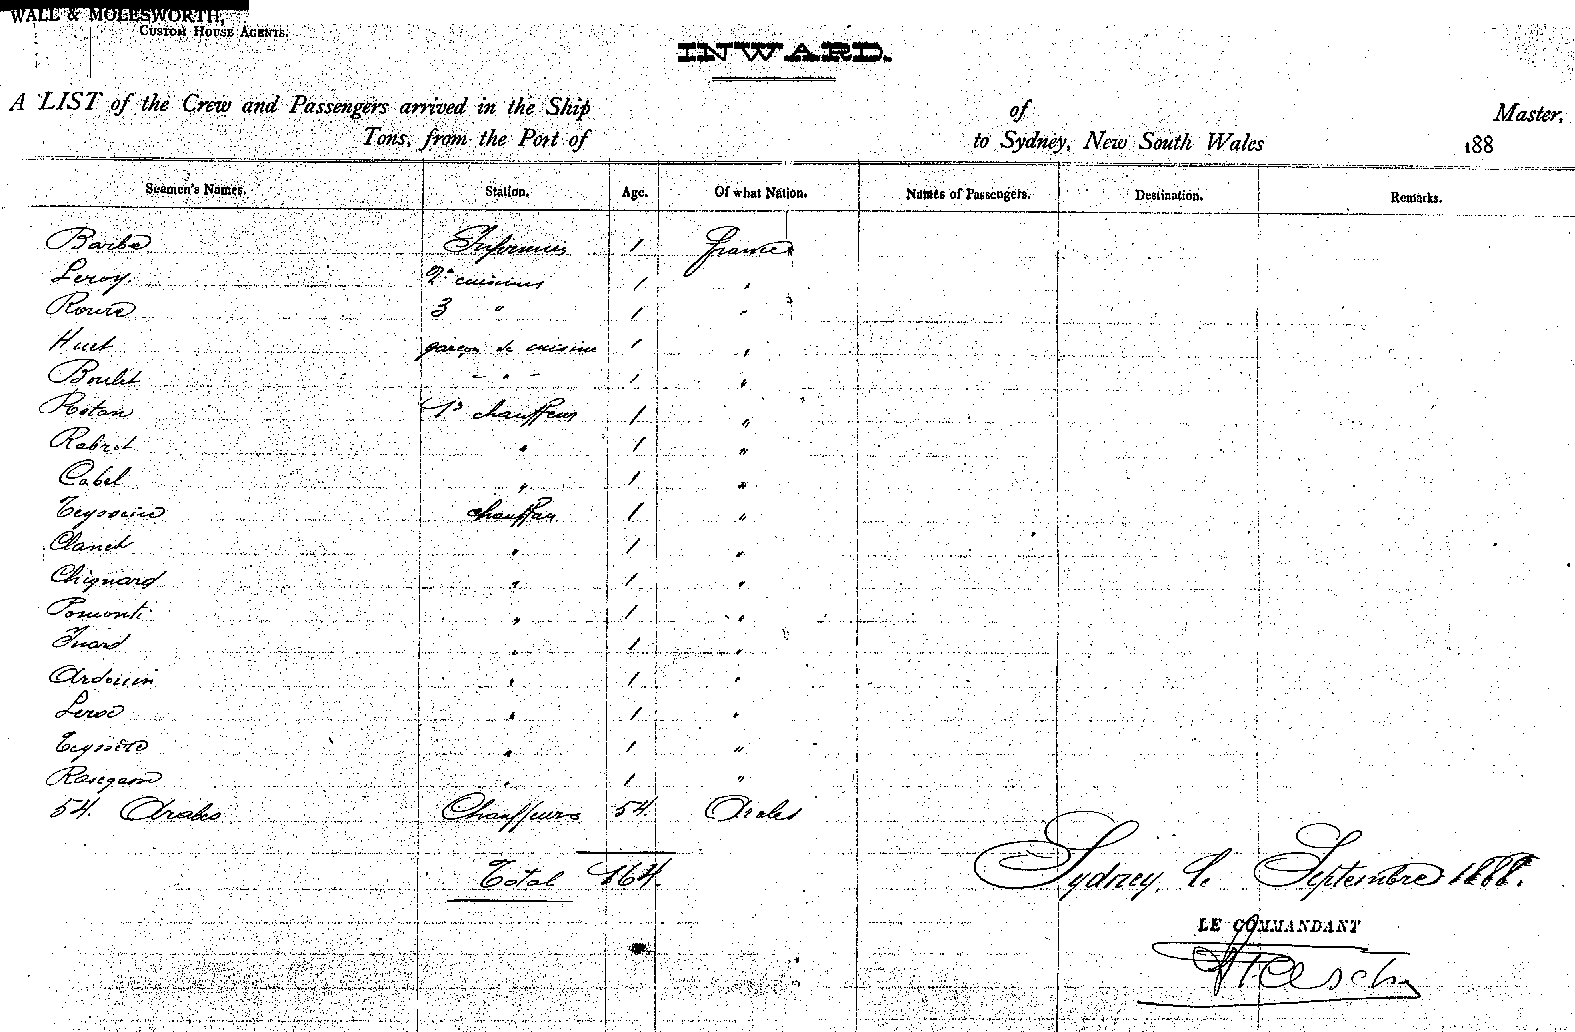 WALL & MOLESWORTH,
CUSTOM HOUSE AGENTS.
INWARD.
A LIST of the Crew and Passengers arrived in the Ship of Master,
Tons, from the Port of to Sydney, New South Wales 188
Seamen's Names. Station. Age. Of what Nation. Names of Passengers. Destination. Remarks.
Barba 1 France
Leroy 2e 1 "
3 " 1 "
Huet garçon de cuisine 1 "
Boulet - " - 1 "
Rotan 1er chauffeur 1 "
Rabret " 1 "
Cabel " 1 "
Teysseire chauffeur 1 "
Clanet " 1 "
Chignard " 1 "
Pomonti " 1 "
" 1 "
Ardouin " 1 "
" 1 "
" 1 "
" 1 "
54. Arabes Chauffeurs 54. Arabes
Total 164.
Sydney, le Septembre 1888.
LE COMMANDANT